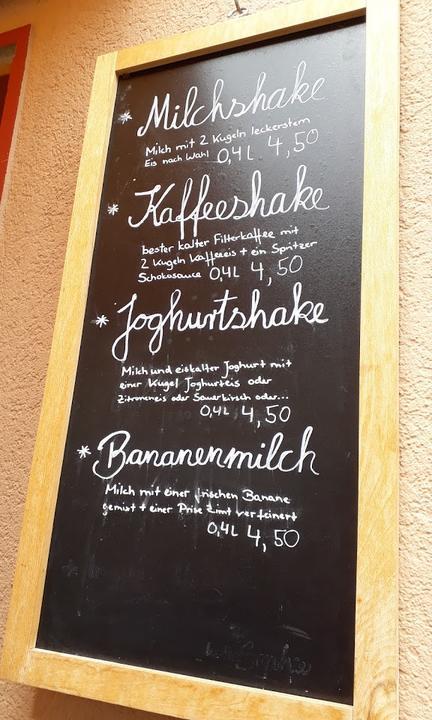 * Milchshake
Milch mit 2 Kugeln leckerstem
Eis nach Wahl 0,4L 4,50
* Kaffeeshake
bester kalter Filterkaffee mit
2 Kugeln Kaffeeeis + ein Spritzer
Schokosauce 0,4L 4,50
* Joghurtshake
Milch und eiskalter Joghurt mit
einer Kugel Joghurteis oder
Zitroneneis oder Sauerkirsch oder...
0,4L 4,50
* Bananenmilch
Milch mit einer frischen Banane
gemixt + einer Prise Zimt verfeinert
0,4L 4,50